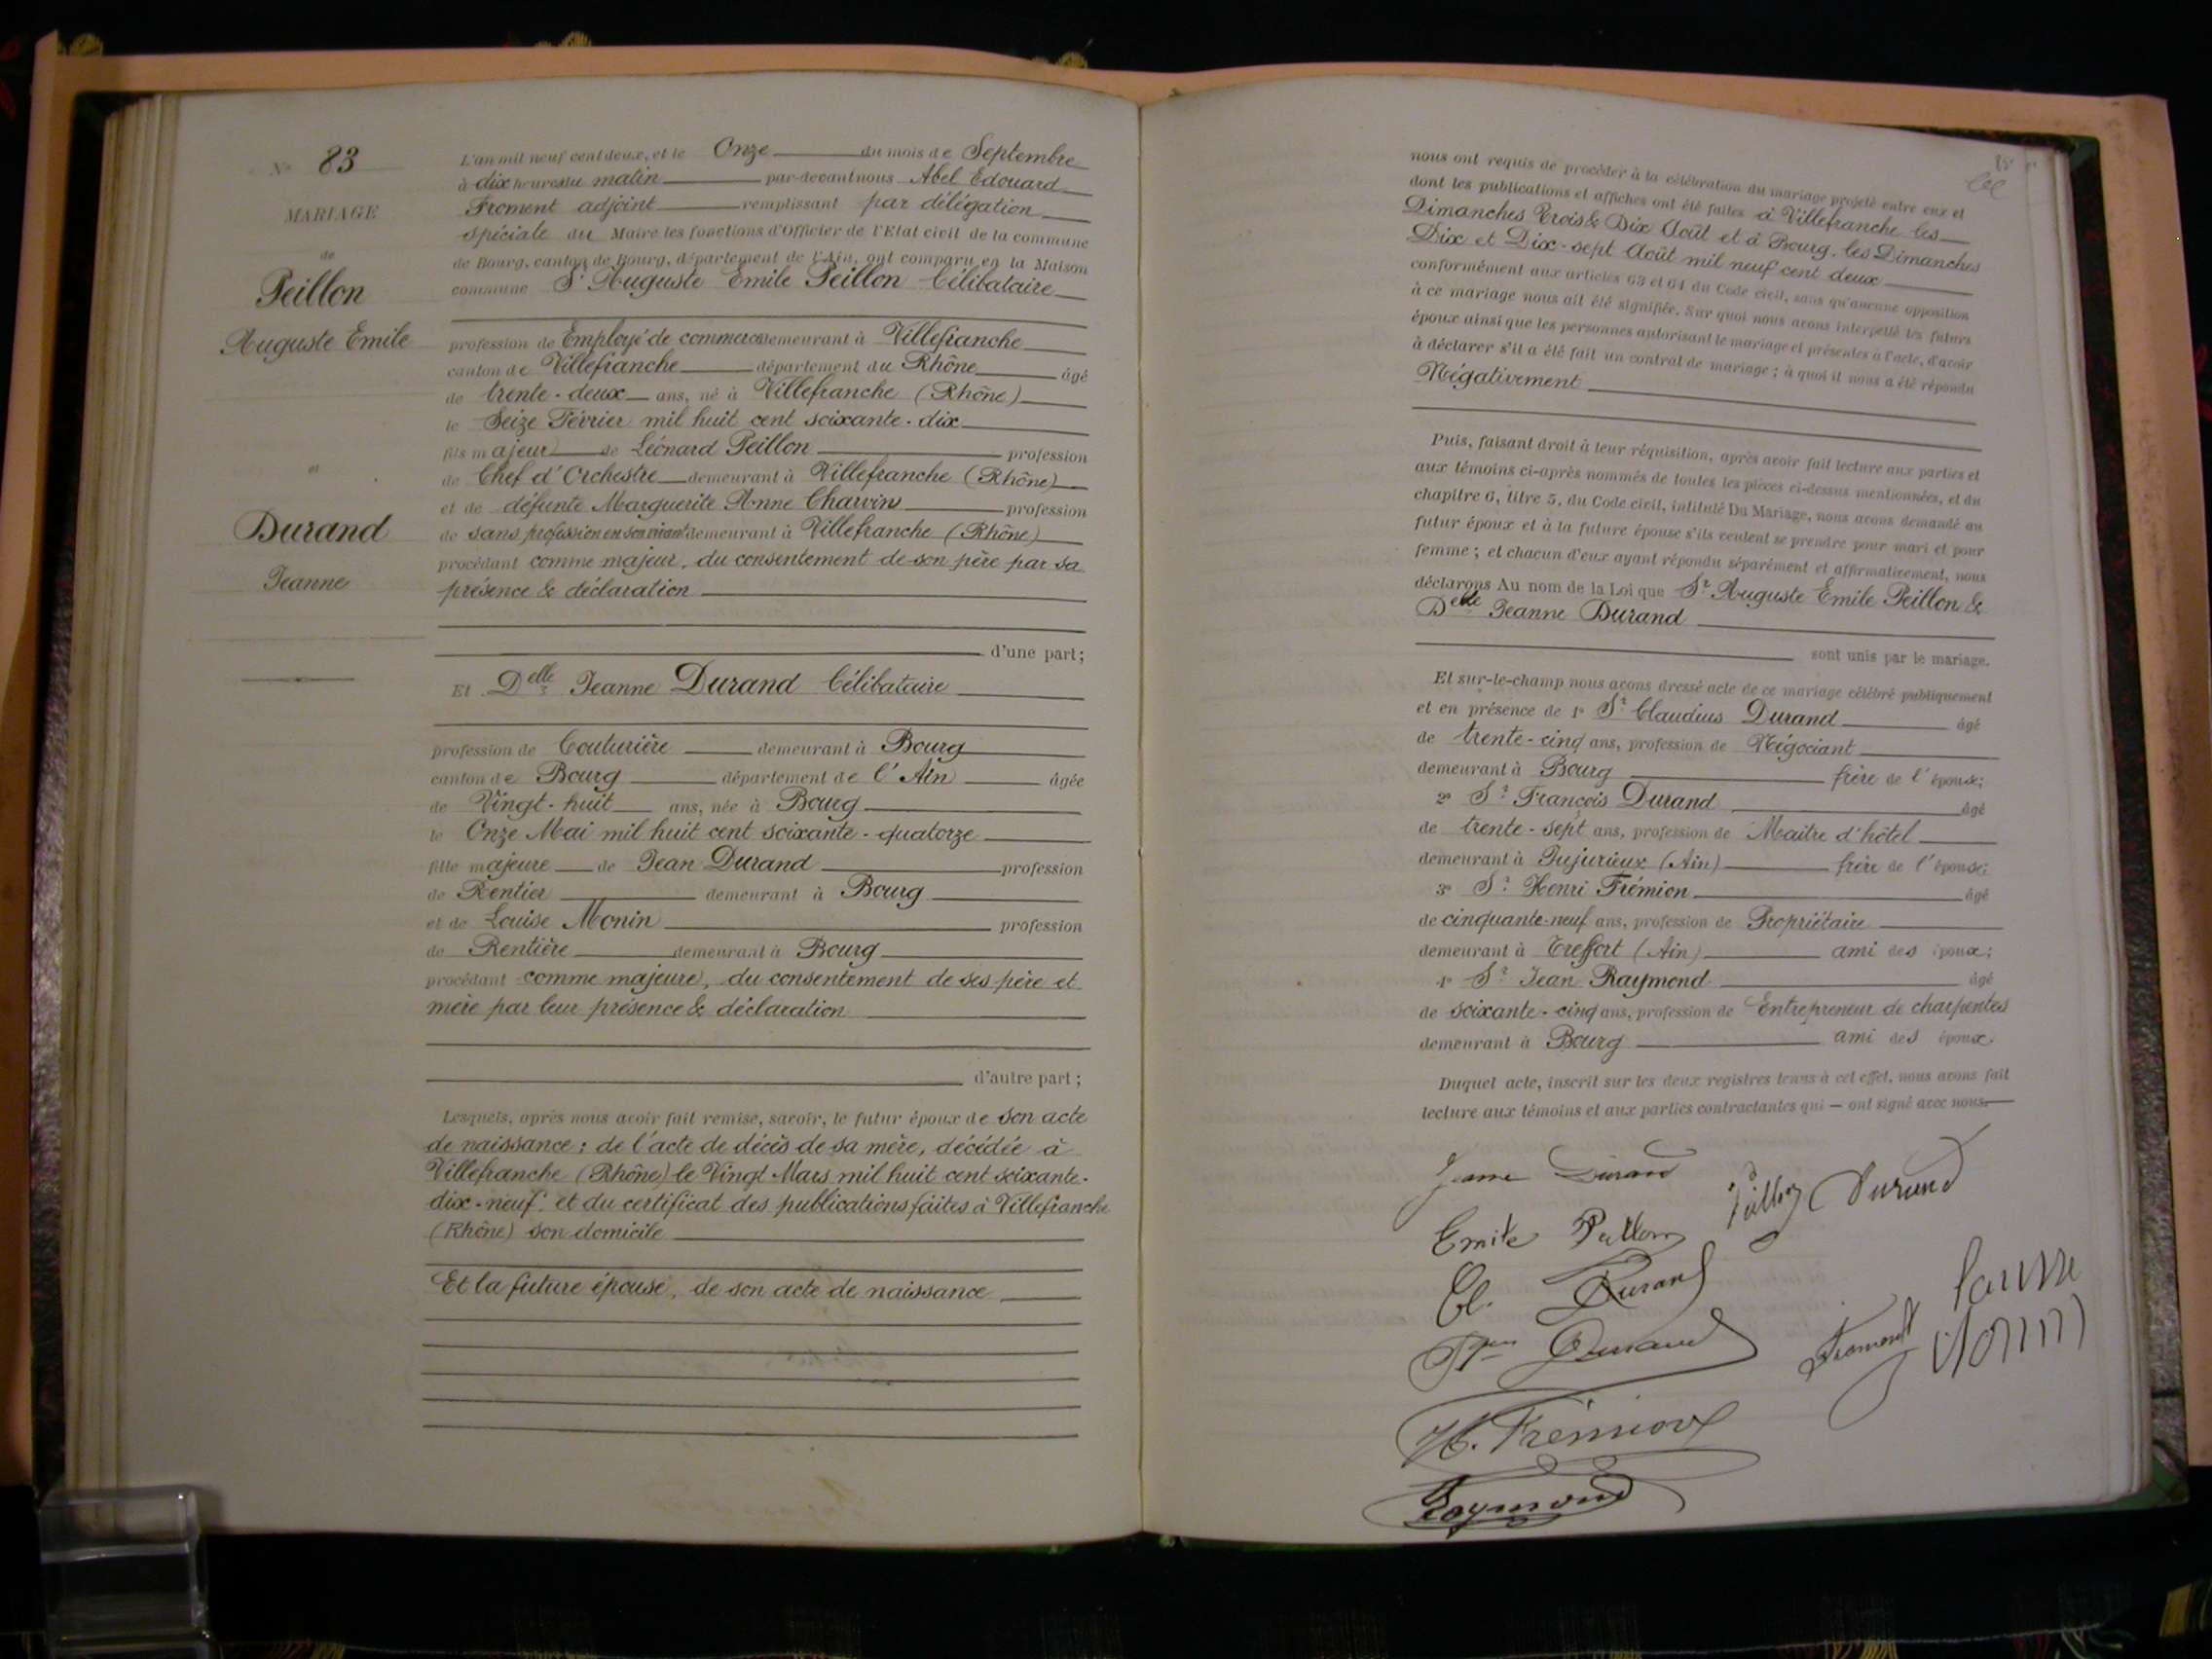 N° 83
MARIAGE
de
Peillon
Auguste Emile
et
Durand
Jeanne
L'an mil neuf cent deux, et le Onze du mois de Septembre
à dix heures du matin par-devant nous Abel Edouard
Froment adjoint remplissant par délégation
spéciale du Maire les fonctions d'Officier de l'Etat civil de la commune
de Bourg, canton de Bourg, département de l'Ain, ont comparu en la Maison
commune Sr Auguste Emile Peillon Célibataire
profession de Employé de commerce demeurant à Villefranche
canton de Villefranche département du Rhône âgé
de trente-deux ans, né à Villefranche (Rhône)
le Seize Février mil huit cent soixante-dix
fils majeur de Léonard Peillon profession
de Chef d'Orchestre demeurant à Villefranche (Rhône)
et de défunte Marguerite Anne Charvin profession
de sans profession en son vivant demeurant à Villefranche (Rhône)
procédant comme majeur, du consentement de son père par sa
présence & déclaration
d'une part;
Et Delle Jeanne Durand Célibataire
profession de Couturière demeurant à Bourg
canton de Bourg département de l'Ain âgée
de Vingt-huit ans, née à Bourg
le Onze Mai mil huit cent soixante-quatorze
fille majeure de Jean Durand profession
de Rentier demeurant à Bourg
et de Louise Monin profession
de Rentière demeurant à Bourg
procédant comme majeure, du consentement de ses père et
mère par leur présence & déclaration
d'autre part;
Lesquels, après nous avoir fait remise, savoir, le futur époux de son acte
de naissance: de l'acte de décès de sa mère, décédée à
Villefranche (Rhône) le Vingt Mars mil huit cent soixante-
dix-neuf, et du certificat des publications faites à Villefranche
(Rhône) son domicile
Et la future épouse, de son acte de naissance
nous ont requis de procéder à la célébration du mariage projeté entre eux et
dont les publications et affiches ont été faites à Villefranche les
Dimanches Trois & Dix Août et à Bourg, les Dimanches
Dix et Dix-sept Août mil neuf cent deux
conformément aux articles 63 et 64 du Code civil, sans qu'aucune opposition
à ce mariage nous ait été signifiée. Sur quoi nous avons interpellé les futurs
époux ainsi que les personnes autorisant le mariage et présentes à l'acte, d'avoir
à déclarer s'il a été fait un contrat de mariage; à quoi il nous a été répondu
Négativement
Puis, faisant droit à leur réquisition, après avoir fait lecture aux parties et
aux témoins ci-après nommés de toutes les pièces ci-dessus mentionnées, et du
chapitre 6, titre 5, du Code civil, intitulé Du Mariage, nous avons demandé au
futur époux et à la future épouse s'ils veulent se prendre pour mari et pour
femme; et chacun d'eux ayant répondu séparément et affirmativement, nous
déclarons Au nom de la Loi que Sr Auguste Emile Peillon &
Delle Jeanne Durand
sont unis par le mariage.
Et sur-le-champ nous avons dressé acte de ce mariage célébré publiquement
et en présence de 1° Sr Claudius Durand âgé
de trente-cinq ans, profession de Négociant
demeurant à Bourg frère de l'épouse;
2° Sr François Durand âgé
de trente-sept ans, profession de Maitre d'hôtel
demeurant à Jujurieux (Ain) frère de l'épouse;
3° Sr Henri Frémion âgé
de cinquante-neuf ans, profession de Propriétaire
demeurant à Treffort (Ain) ami des époux;
4° Sr Jean Raymond âgé
de soixante-cinq ans, profession de Entrepreneur de charpentes
demeurant à Bourg ami des époux.
Duquel acte, inscrit sur les deux registres tenus à cet effet, nous avons fait
lecture aux témoins et aux parties contractantes qui — ont signé avec nous.
Jeanne Durand
Peillon Durand
Emile Peillon
Cl. Durand
Louise
Monin
Durand
Froment
H. Frémion
Raymond